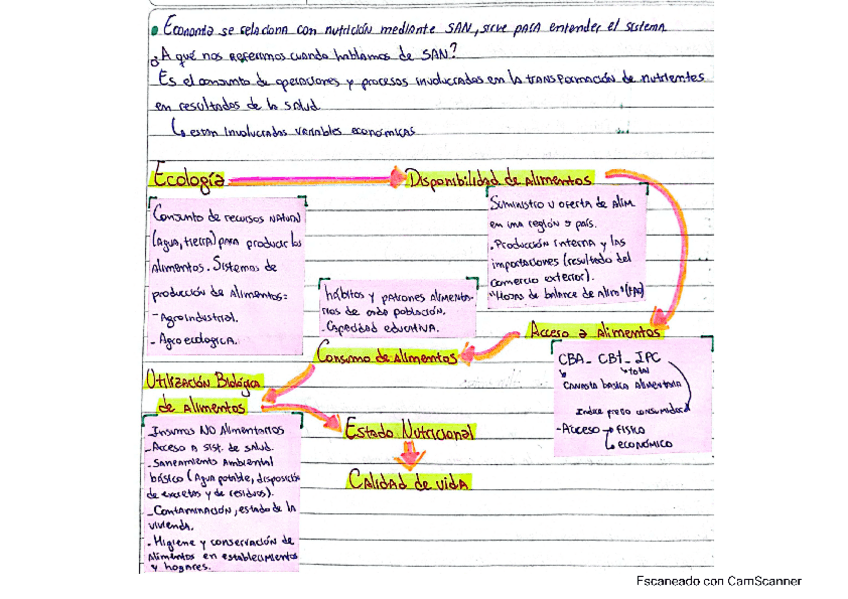 Economía se relaciona con nutrición mediante SAN, sirve para entender el sistema
¿A qué nos referimos cuando hablamos de SAN?
Es el conjunto de operaciones y procesos involucrados en la transformación de nutrientes
en resultados de la salud
↳ están involucradas variables económicas
Ecología
Disponibilidad de alimentos
Conjunto de recursos natural
(agua, tierra) para producir los
alimentos. Sistemas de
producción de alimentos:
- Agroindustrial.
- Agroecologica.
Suministro u oferta de alim
en una región o país.
. Producción interna y las
importaciones (resultado del
comercio exterior).
"Hojas de balance de alim"
hábitos y patrones alimenta-
rios de cada población.
- Capacidad educativa.
Acceso a alimentos
Consumo de alimentos
CBA_ CBT_ IPC
↳ total
Canasta básica alimentaria
Indice precio consumidor
- Acceso → físico
↳ económico
Utilización Biológica
de alimentos
Insumos NO alimentarios
- Acceso a sist. de salud.
- Saneamiento ambiental
básico (agua potable, disposición
de excretas y de residuos).
- Contaminación, estado de la
vivienda.
- Higiene y conservación de
alimentos en establecimientos
y hogares.
Estado Nutricional
Calidad de vida
Escaneado con CamScanner